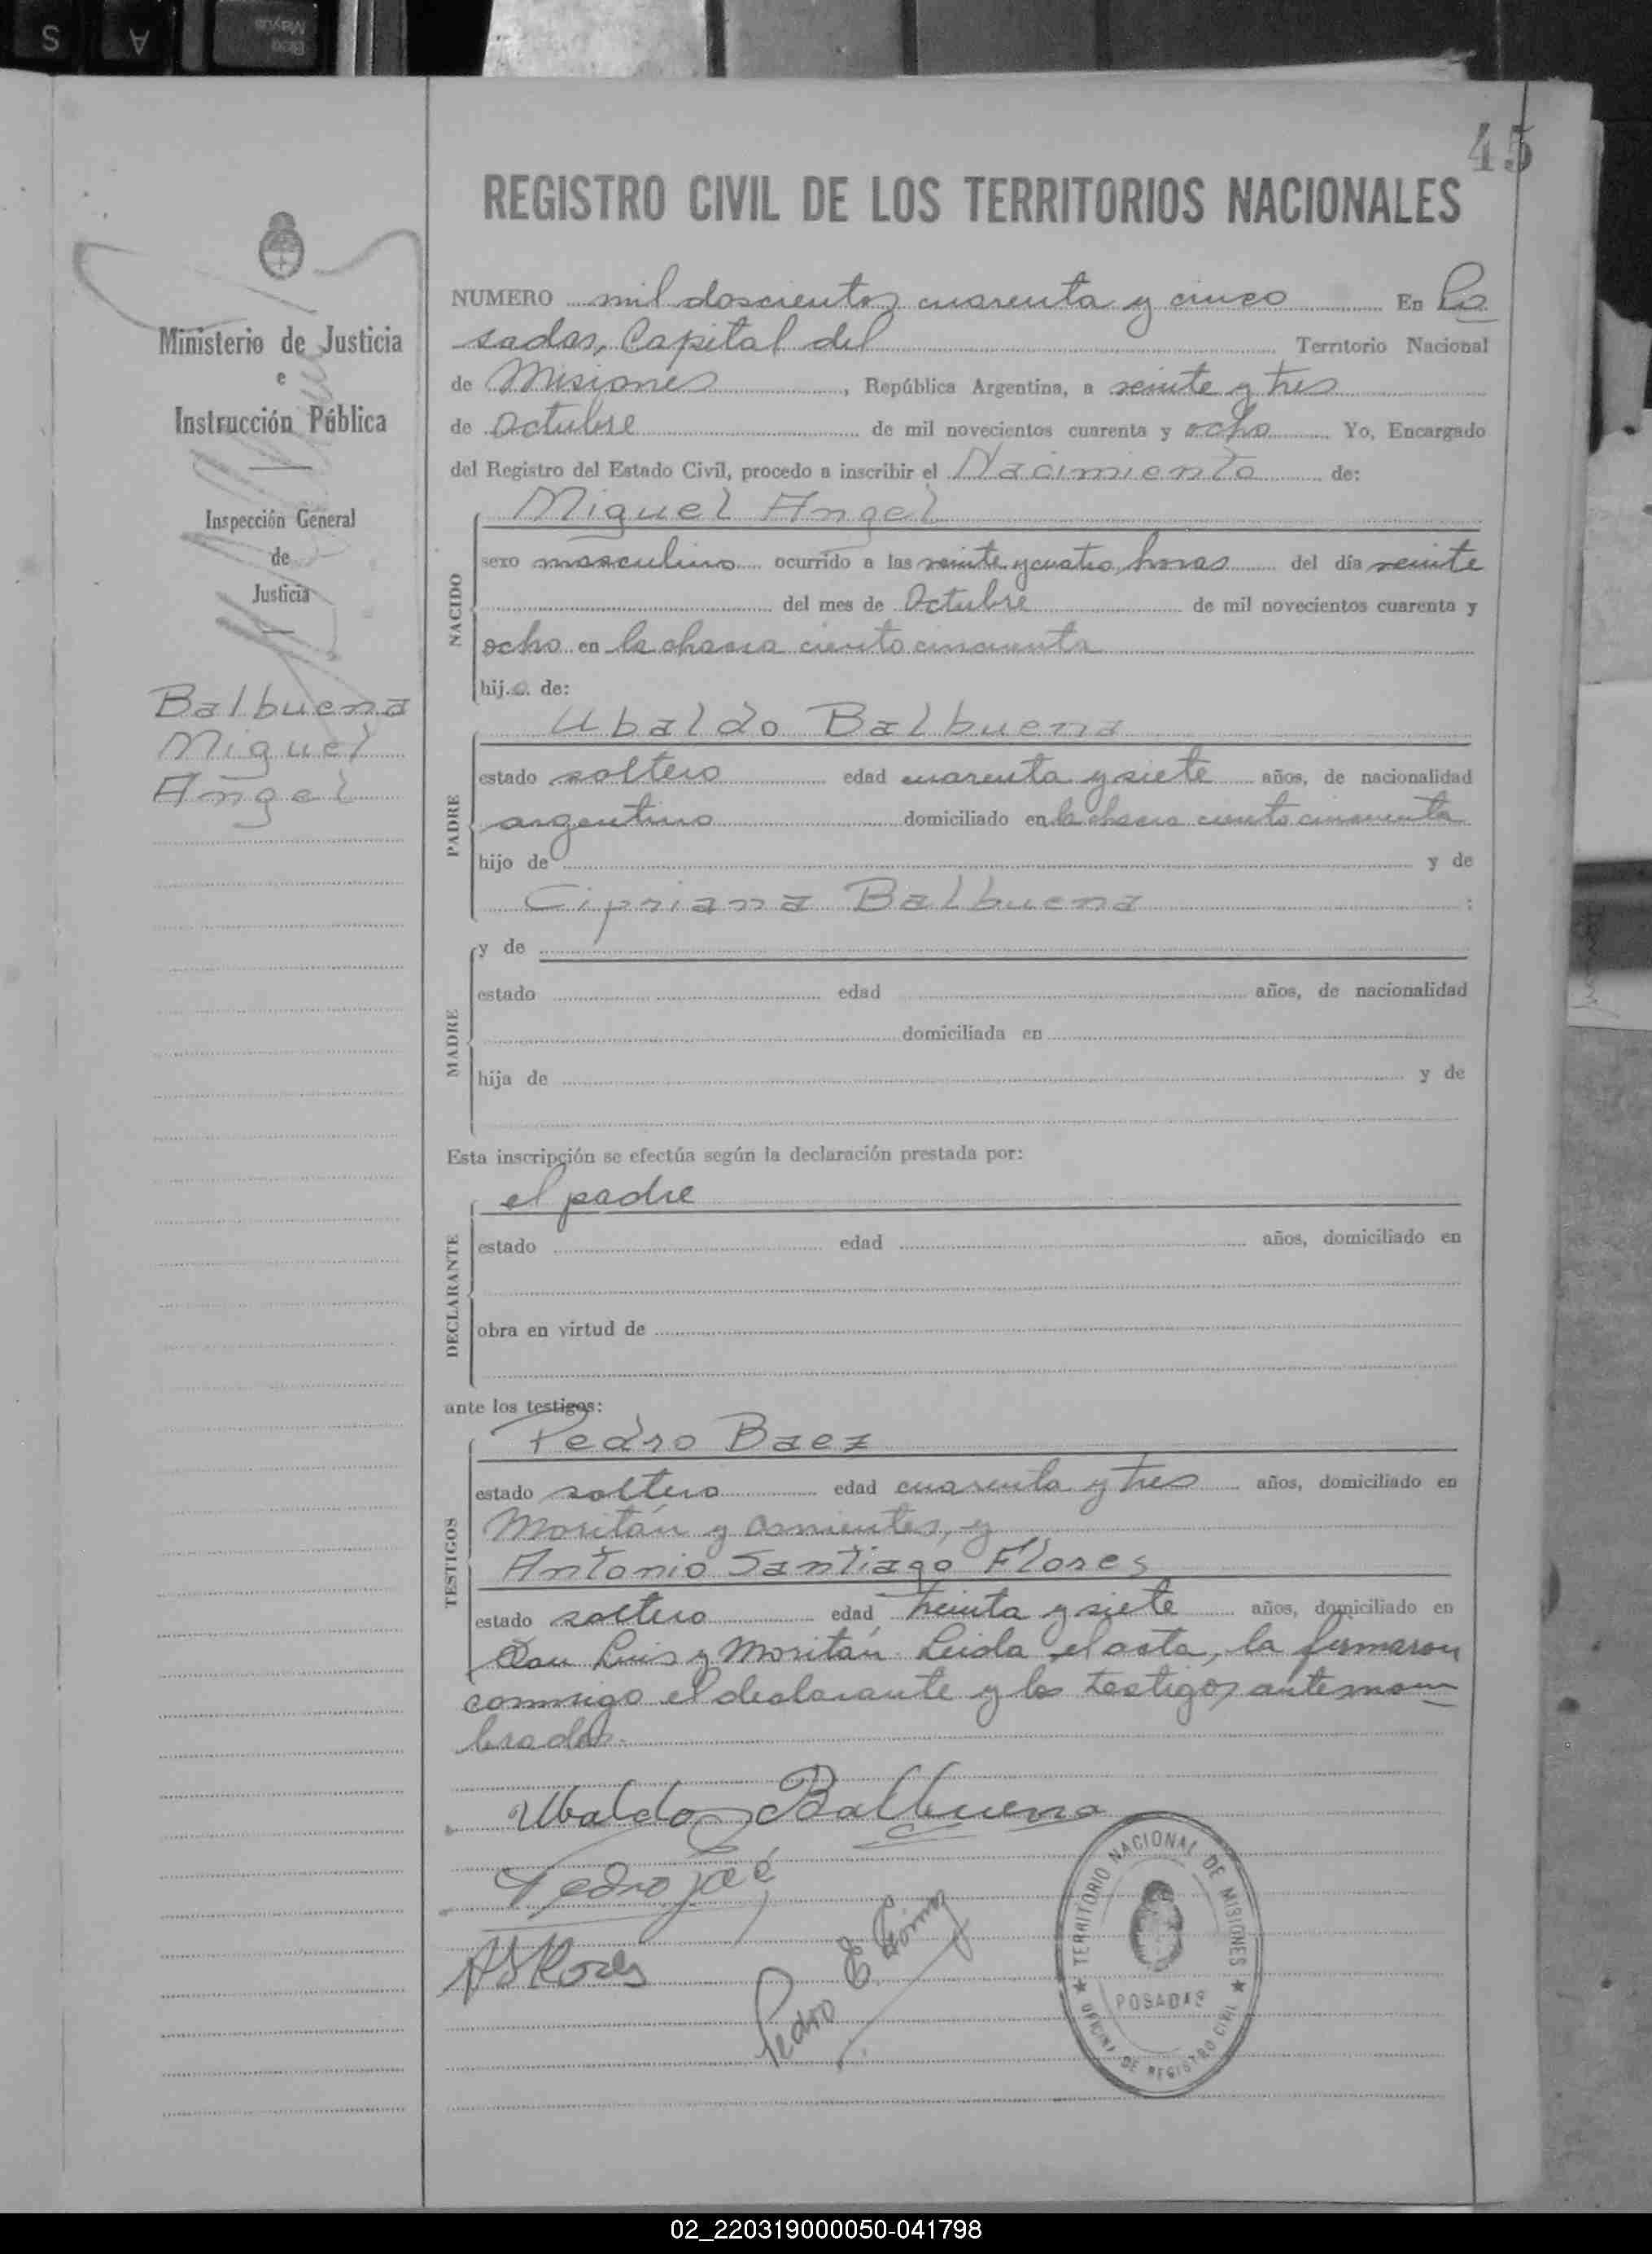 S A Bloq Mayús
45
REGISTRO CIVIL DE LOS TERRITORIOS NACIONALES
Ministerio de Justicia
e
Instrucción Pública
Inspección General
de
Justicia
Balbuena
Miguel
Angel
NUMERO mil doscientos cuarenta y cinco En Po
sadas, Capital del Territorio Nacional
de Misiones, República Argentina, a veinte y tres
de Octubre de mil novecientos cuarenta y ocho Yo, Encargado
del Registro del Estado Civil, procedo a inscribir el Nacimiento de:
Miguel Angel
NACIDO
sexo masculino ocurrido a las veinte y cuatro horas del día veinte
del mes de Octubre de mil novecientos cuarenta y
ocho en la chacra ciento cincuenta
hijo de:
Ubaldo Balbuena
PADRE
estado soltero edad cuarenta y siete años, de nacionalidad
argentino domiciliado en la chacra ciento cincuenta
hijo de y de
Cipriana Balbuena :
MADRE
y de
estado edad años, de nacionalidad
domiciliada en
hija de y de
Esta inscripción se efectúa según la declaración prestada por:
el padre
DECLARANTE
estado edad años, domiciliado en
obra en virtud de
ante los testigos:
Pedro Baez
TESTIGOS
estado soltero edad cuarenta y tres años, domiciliado en
Moritán y Corrientes, y
Antonio Santiago Flores
estado soltero edad treinta y siete años, domiciliado en
San Luis y Moritán. Leida el acta, la firmaron
conmigo el declarante y los testigos antenom
brados.
Ubaldo Balbuena
Pedro
A S Flores
Pedro E.
TERRITORIO NACIONAL DE MISIONES
POSADAS
OFICINA DE REGISTRO CIVIL
02_220319000050-041798